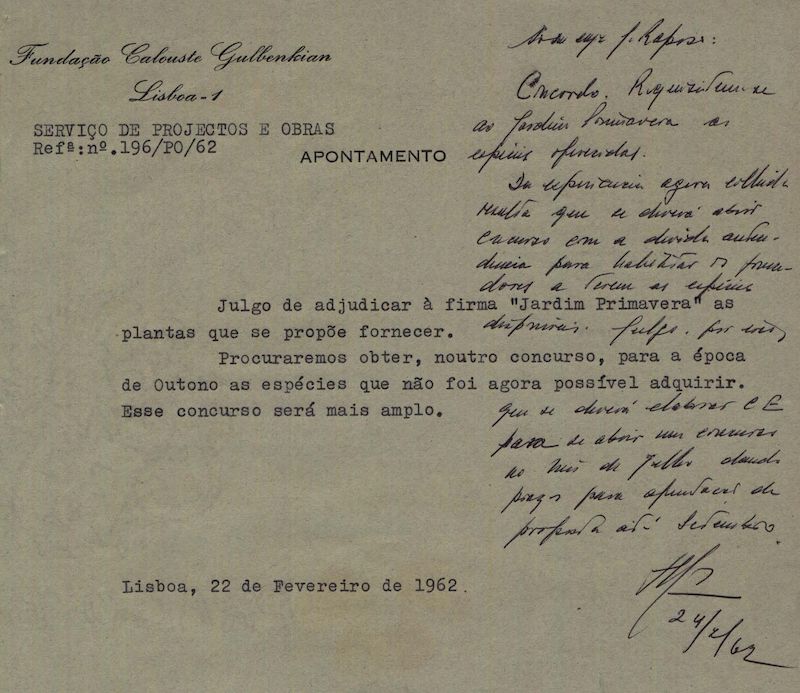 Fundação Calouste Gulbenkian
Lisboa-1
SERVIÇO DE PROJECTOS E OBRAS
Refª:nº.196/PO/62
APONTAMENTO
Julgo de adjudicar à firma "Jardim Primavera" as
plantas que se propõe fornecer.
Procuraremos obter, noutro concurso, para a época
de Outono as espécies que não foi agora possível adquirir.
Esse concurso será mais amplo.
Lisboa, 22 de Fevereiro de 1962.
Raposo:
Concordo. Requisitem-se
ao Jardim Primavera as
espécies oferecidas.
Da experiencia agora colhida
resulta que se deverá abrir
concurso com a devida antece-
dencia para habilitar os forne-
dores a terem as espécies
disponiveis. Julgo, por isso,
que se deverá elaborar C E
para se abrir um concurso
no mês de Julho dando
prazo para
proposta até Setembro.
24/2/62